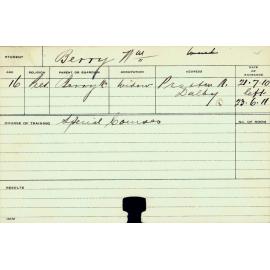 STUDENT Berry Wm
AGE RELIGION PARENT OR GUARDIAN OCCUPATION ADDRESS DATE OF ENTRANCE
16 Pres Berry Widow Preston R. 21.7.10
Dalby left
23.6.11
COURSE OF TRAINING Special Courses NO. OF ROOM
RESULTS
DATE